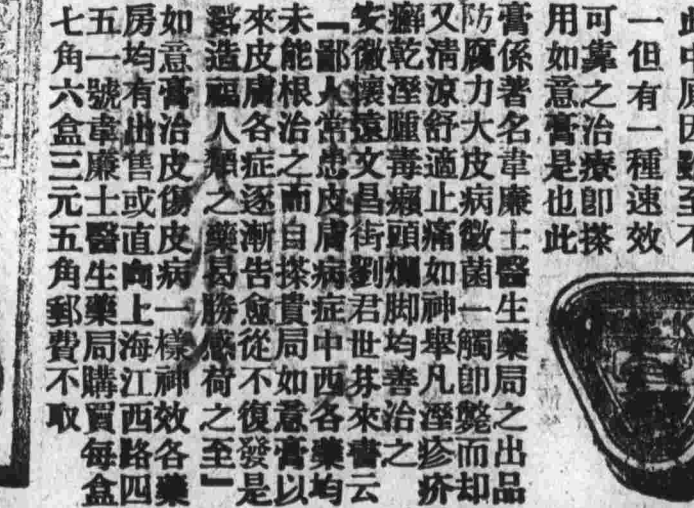 中原因雖至不
一但有一種速效
可靠之治療即搽
用如意膏是也此
膏係著名韋廉士醫生藥局之出品
防腐力大皮病微菌一觸即斃而却
又清涼舒適止痛如神舉凡溼疹疥
癬乾溼腫毒癩頭爛脚均善治之
安徽懷遠文昌街劉君世芬來書云
「鄙人常患皮膚病症中西各藥均
未能根治之而自搽貴局如意膏以
來皮膚各症逐漸告愈從不復發是
造福人類之藥曷勝感荷之至」
如意膏治皮傷皮病一樣神效各藥
房均有出售或直向上海江西路四
五一號韋廉士醫生藥局購買每盒
七角六盒三元五角郵費不取